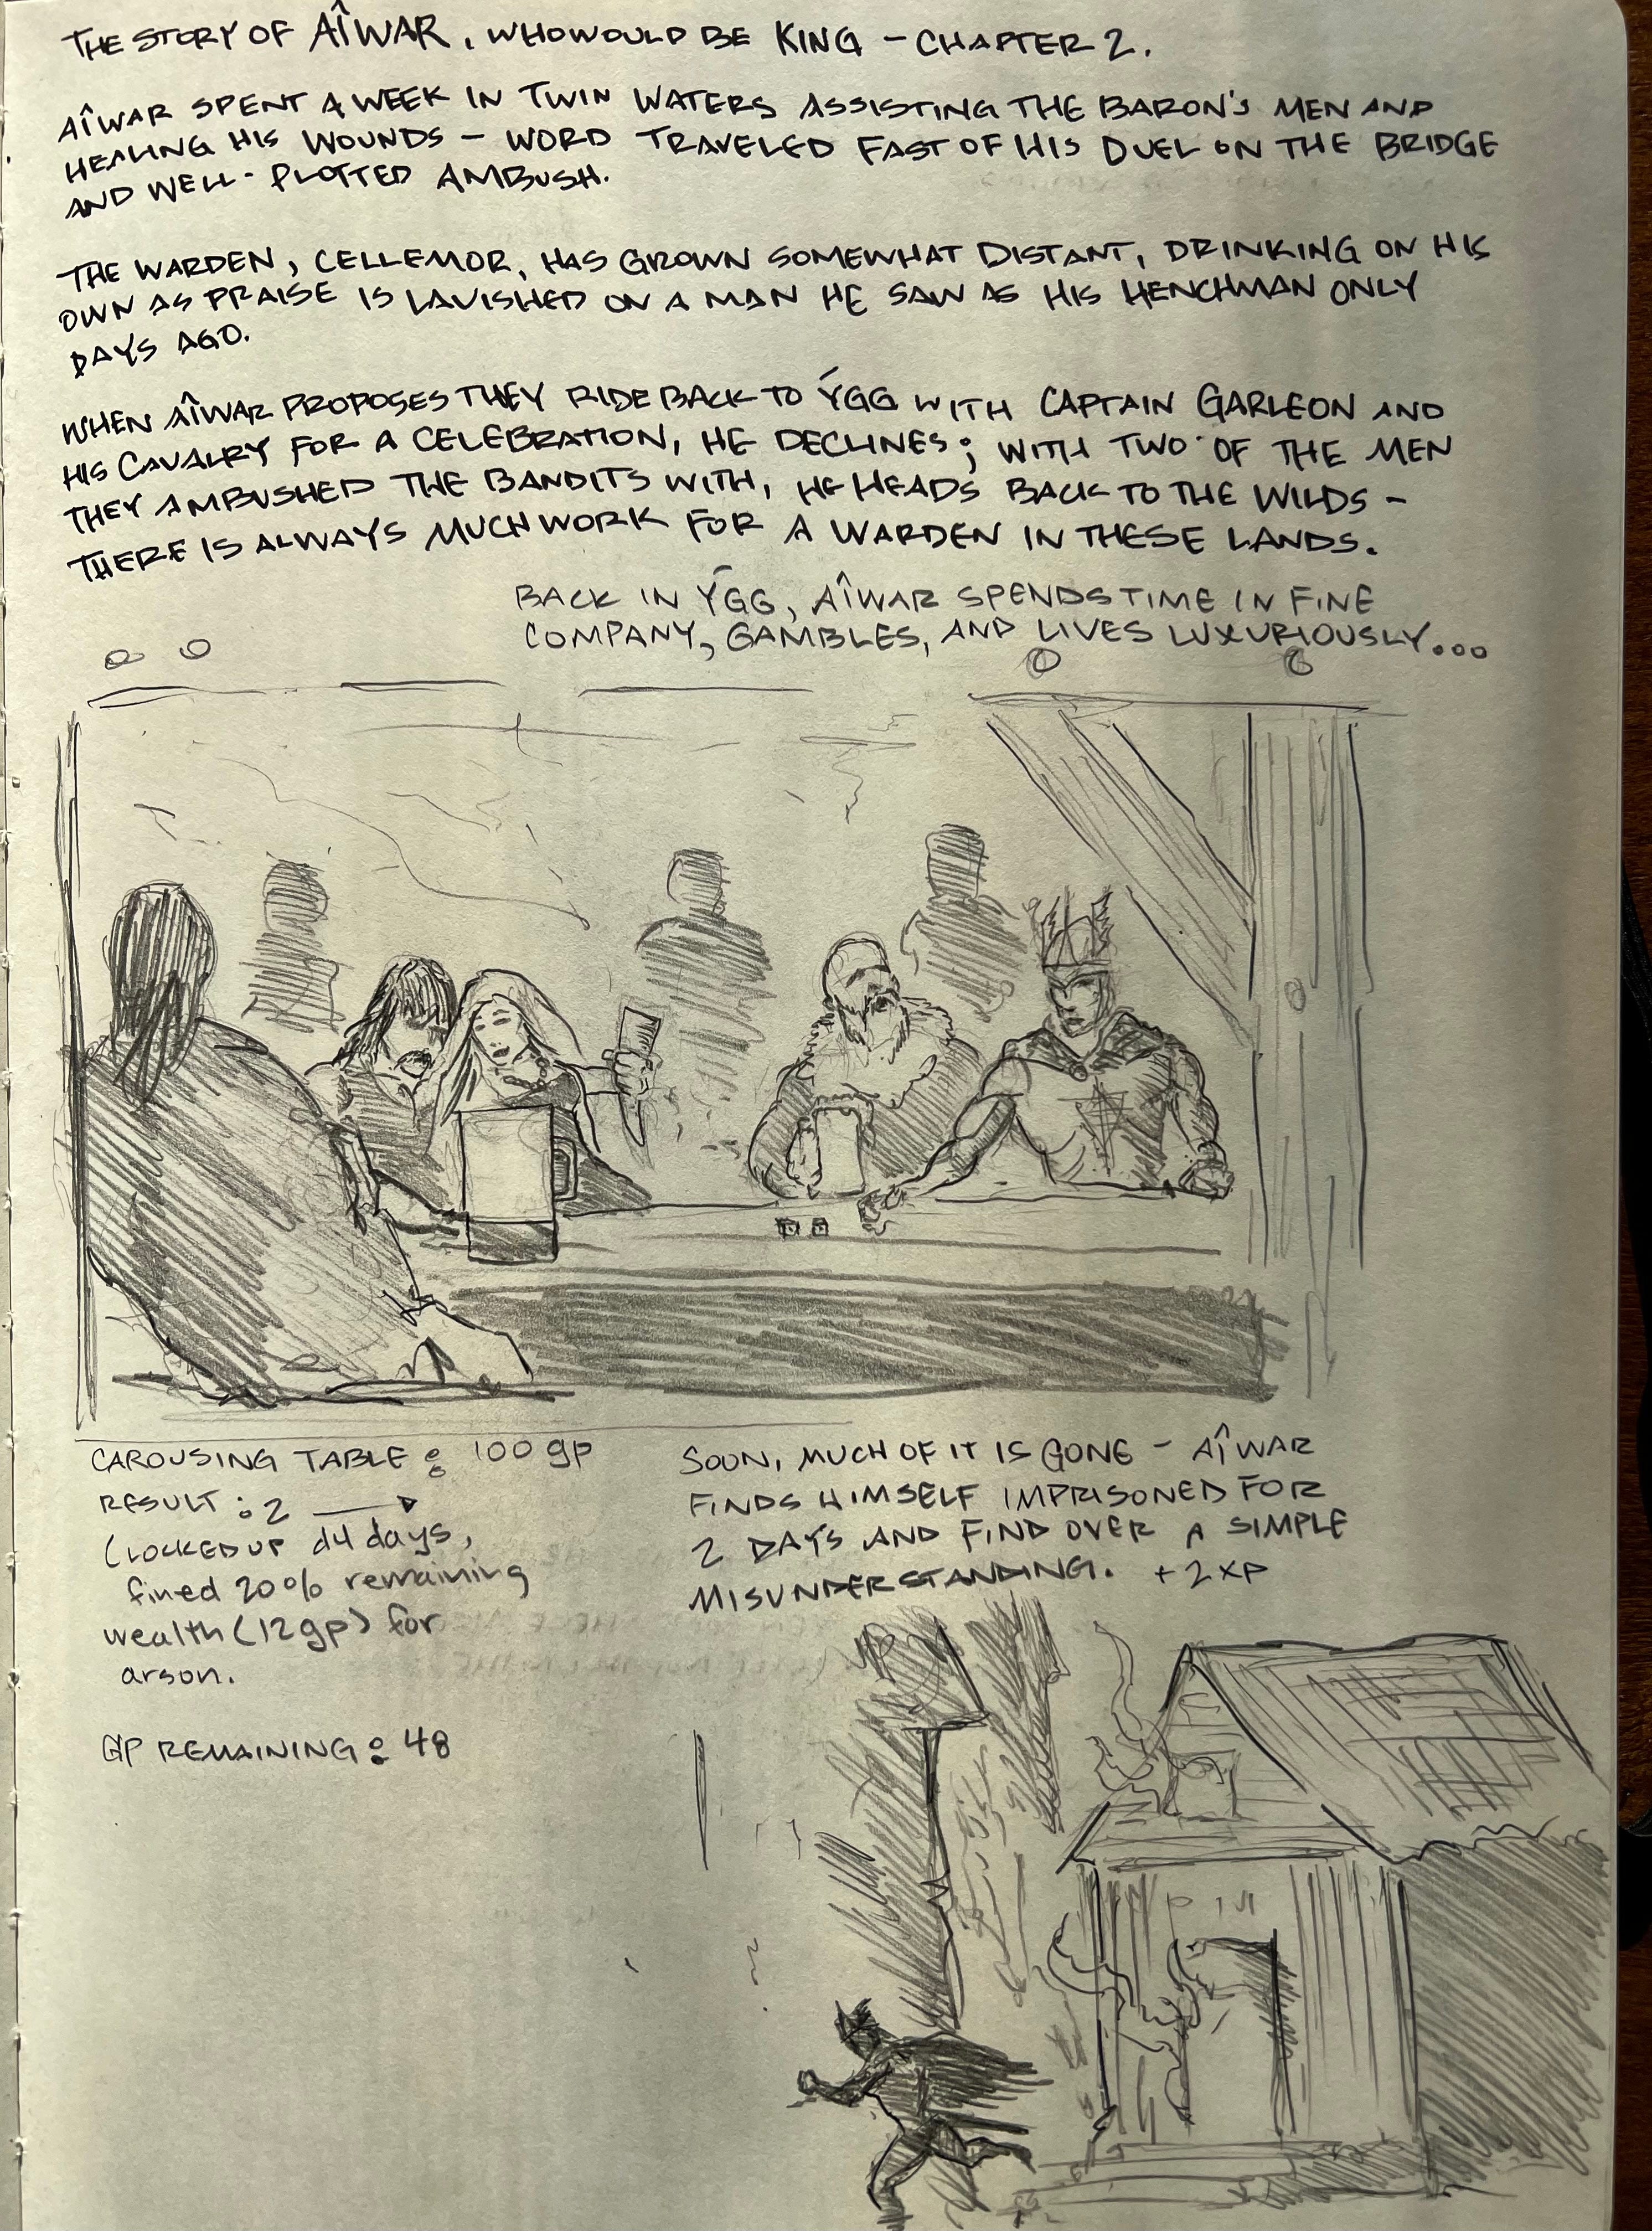 THE STORY OF AÎWAR, WHO WOULD BE KING – CHAPTER 2.
AÎWAR SPENT A WEEK IN TWIN WATERS ASSISTING THE BARON'S MEN AND
HEALING HIS WOUNDS – WORD TRAVELED FAST OF HIS DUEL ON THE BRIDGE
AND WELL-PLOTTED AMBUSH.
THE WARDEN, CELLEMOR, HAS GROWN SOMEWHAT DISTANT, DRINKING ON HIS
OWN AS PRAISE IS LAVISHED ON A MAN HE SAW AS HIS HENCHMAN ONLY
DAYS AGO.
WHEN AÎWAR PROPOSES THEY RIDE BACK TO ÝGG WITH CAPTAIN GARLEON AND
HIS CAVALRY FOR A CELEBRATION, HE DECLINES; WITH TWO OF THE MEN
THEY AMBUSHED THE BANDITS WITH, HE HEADS BACK TO THE WILDS –
THERE IS ALWAYS MUCH WORK FOR A WARDEN IN THESE LANDS.
BACK IN ÝGG, AÎWAR SPENDS TIME IN FINE
COMPANY, GAMBLES, AND LIVES LUXURIOUSLY...
CAROUSING TABLE: 100 gp
RESULT: 2 →
(LOCKED UP d4 days,
fined 20% remaining
wealth (12gp) for
arson.
GP REMAINING: 48
SOON, MUCH OF IT IS GONE – AÎWAR
FINDS HIMSELF IMPRISONED FOR
2 DAYS AND FIND OVER A SIMPLE
MISUNDERSTANDING. +2 XP